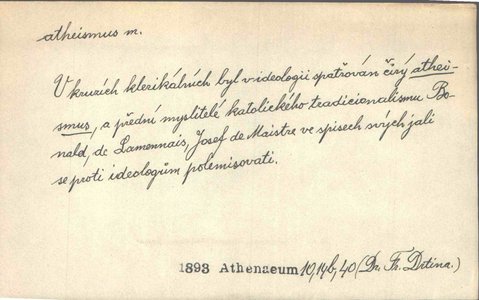 atheismus m.
V kruzích klerikálních byl v ideologii spatřován čirý athei-
smus, a přední myslitelé katolického tradicionalismu Bo-
nald, de Lamennais, Josef de Maistre ve spisech svých jali
se proti ideologům polemisovati.
1893 Athenaeum 10, 14b, 40 (Dr. Fr. Drtina.)